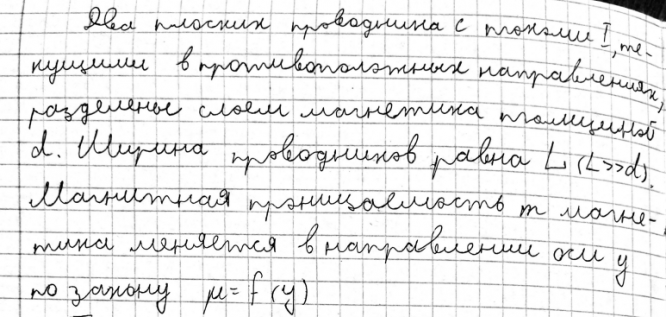 Два плоских проводника с токами I, те-
кущими в противоположных направлениях,
разделены слоем магнетика толщиной
d. Ширина проводников равна L (L>>d).
Магнитная прэницаемость m магне-
тика меняется в направлении оси y
по закону μ = f (y)